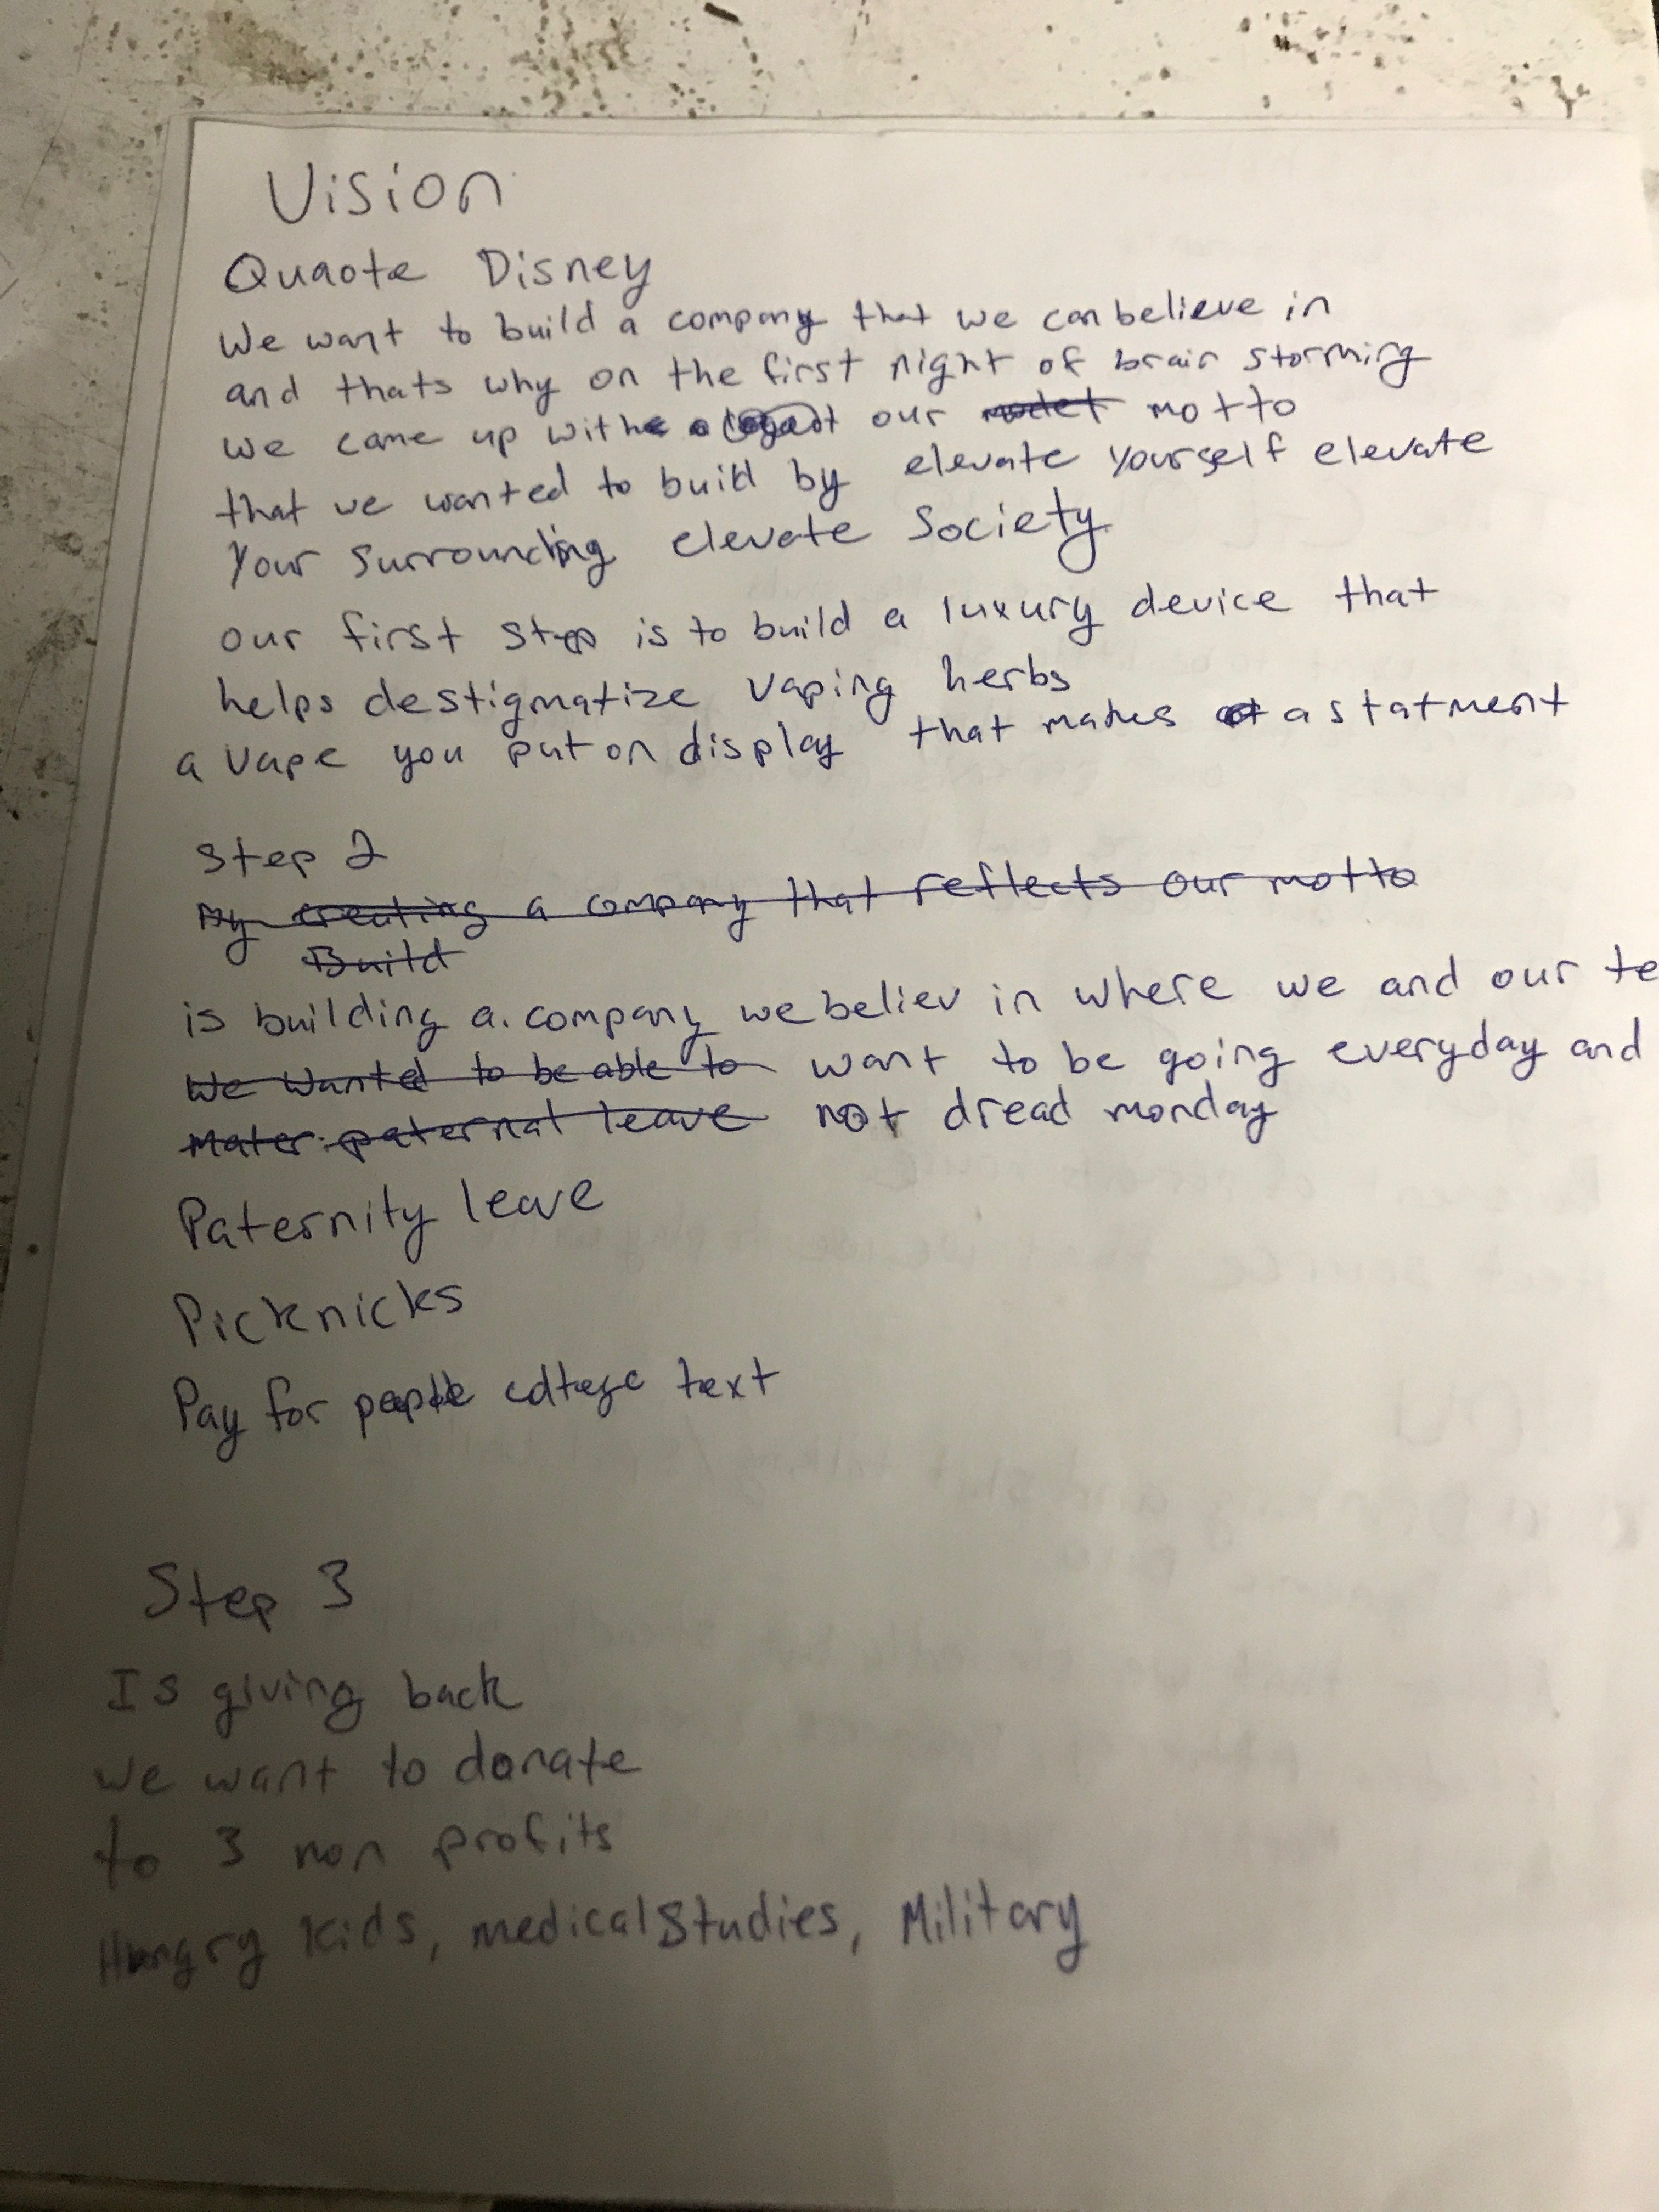 Vision
Quaote Disney
We want to build a company that we can believe in
and thats why on the first night of brain storming
we came up with our model motto
that we wanted to build by elevate yourself elevate
Your Surrounding elevate Society
our first step is to build a luxury device that
helps destigmatize vaping herbs
a vape you put on display that makes a statment
Step 2
By creating a company that reflects our motto
Build
is building a company we believ in where we and our te
We wanted to be able to want to be going everyday and
Mater paternal leave not dread monday
Paternity leave
Picknicks
Pay for people college text
Step 3
Is giving back
We want to donate
to 3 non profits
Hungry Kids, medical Studies, Military